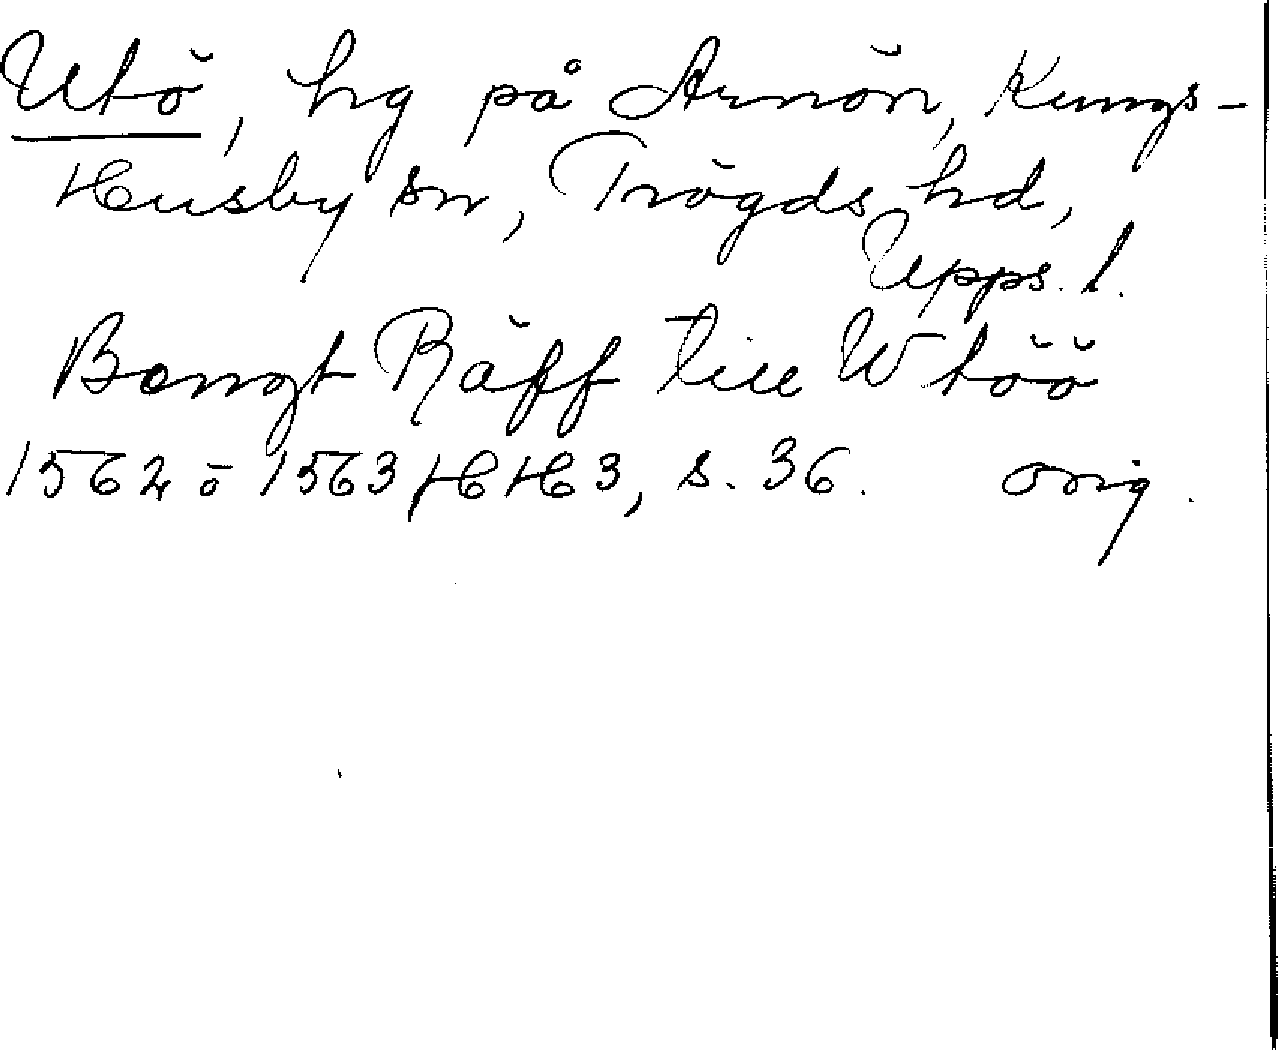 Utö, hg på Arnön, Kungs-
Husby sn, Trögds hd,
Upps. l.
Bengt Räff till Wtöö
1562 ö 1563 HH 3, s. 36. orig.